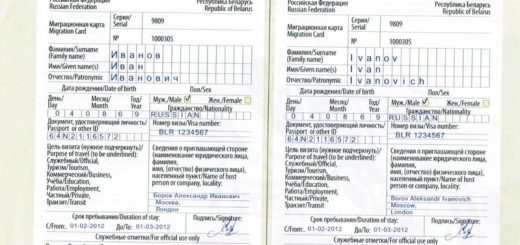 Российская Федерация
Russian Federation
Республика Беларусь
Republic of Belarus
Миграционная карта
Migration Card
Серия/
Serial
9809
№
1000305
Фамилия/Surname
(Family name)
Иванов
Имя/Given name(s)
Иван
Отчество/Patronymic
Иванович
Дата рождения/Date of birth
Пол/Sex
День/
Day
Месяц/
Month
Год/
Year
Муж./Male
Жен./Female
Гражданство/Nationality
040869
RUSSIAN
Документ, удостоверяющий личность/
Passport or other ID
Номер визы/Visa number:
64N2116572
BLR 1234567
Цель визита (нужное подчеркнуть)/
Purpose of travel (to be underlined):
Служебный/Official,
Туризм/Tourism,
Коммерческий/Business,
Учёба/Education,
Работа/Employment,
Частный/Private,
Транзит/Transit
Сведения о приглашающей стороне
(наименование юридического лица,
фамилия,
имя, отчество (физического лица),
населенный пункт/Name of host
person or company, locality:
Боров Александр Иванович
Москва,
Лондон
Срок пребывания/Duration of stay:
Подпись/Signature:
С/From: 01-02-2012 До/To: 01-03-2012
Служебные отметки/For official use only
Российская Федерация
Russian Federation
Республика Беларусь
Republic of Belarus
Миграционная карта
Migration Card
Серия/
Serial
9809
№
1000305
Фамилия/Surname
(Family name)
Ivanov
Имя/Given name(s)
Ivan
Отчество/Patronymic
Ivanovich
Дата рождения/Date of birth
Пол/Sex
День/
Day
Месяц/
Month
Год/
Year
Муж./Male
Жен./Female
Гражданство/Nationality
040869
RUSSIAN
Документ, удостоверяющий личность/
Passport or other ID
Номер визы/Visa number:
64N2116572
BLR 1234567
Цель визита (нужное подчеркнуть)/
Purpose of travel (to be underlined):
Служебный/Official,
Туризм/Tourism,
Коммерческий/Business,
Учёба/Education,
Работа/Employment,
Частный/Private,
Транзит/Transit
Сведения о приглашающей стороне
(наименование юридического лица,
фамилия,
имя, отчество (физического лица),
населенный пункт/Name of host
person or company, locality:
Borov Aleksandr Ivanovich
Moscow,
London
Срок пребывания/Duration of stay:
Подпись/Signature:
С/From: 01-02-2012 До/To: 01-03-2012
Служебные отметки/For official use only